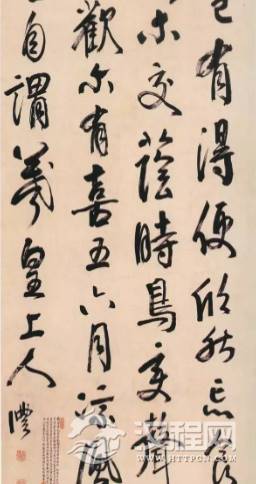 有得便欣然忘食
木交蔭時鳥變聲
歡尔有喜五六月涼風
自謂羲皇上人
漢程网
HTTPCN.COM